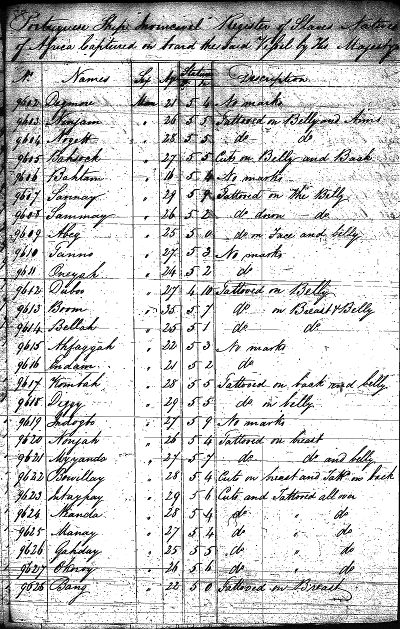 Portuguese Ship Invincivel Register of Slaves Natives
of Africa Captured on board the said Vessel by His Majesty's
No. Names Sex Age Stature Description
F. In.
9602 Dagmore Man 21 5 4 No marks
9603 26 5 5 Tattoved on Belly and Arms
9604 28 5 5 do do
9605 27 5 5 Cuts on Belly and Back
9606 Bahtam " 16 5 No marks
9607 Sannay " 29 5 Tattoved on the Belly
9608 Sammay " 26 5 2 do down do
9609 " 25 5 0 do on Face and belly
9610 Tanno " 27 5 3 No marks
9611 " 24 5 2 do
9612 Dubo " 27 4 10 Tattoved on Belly
9613 Boom " 35 5 7 do on Breast & Belly
9614 Bellah " 25 5 1 do do
9615 Ahfaggah " 22 5 3 No marks
9616 Indam " 21 5 2 do
9617 Kombah " 28 5 5 Tattoved on back and belly
9618 " 29 5 5 do on belly
9619 " 27 5 9 No marks
9620 Nonjah " 26 5 4 Tattoved on breast
9621 " 27 5 7 do do and belly
9622 Bowillay " 28 5 4 Cuts on breast and Tattd. on back
9623 " 29 5 6 Cuts and Tattoved all over
9624 Manda " 28 5 4 do " do
9625 Manay " 27 5 4 do " do
9626 Gahday " 25 5 5 do " do
9627 " 26 5 6 do " do
9628 Bang " 22 5 0 Tattoved on Breast